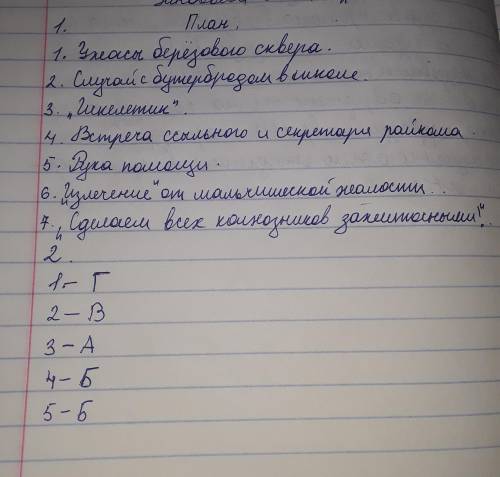 1. План.
1. Ужасы берёзового сквера.
2. Случай с бутербродом в школе.
3. "Шкелетик".
4. Встреча ссыльного и секретаря райкома.
5. Рука помощи.
6. "Излечение" от мальчишеской жалости.
7. "Сделаем всех колхозников зажиточными!".
2.
1 - Г
2 - В
3 - А
4 - Б
5 - Б